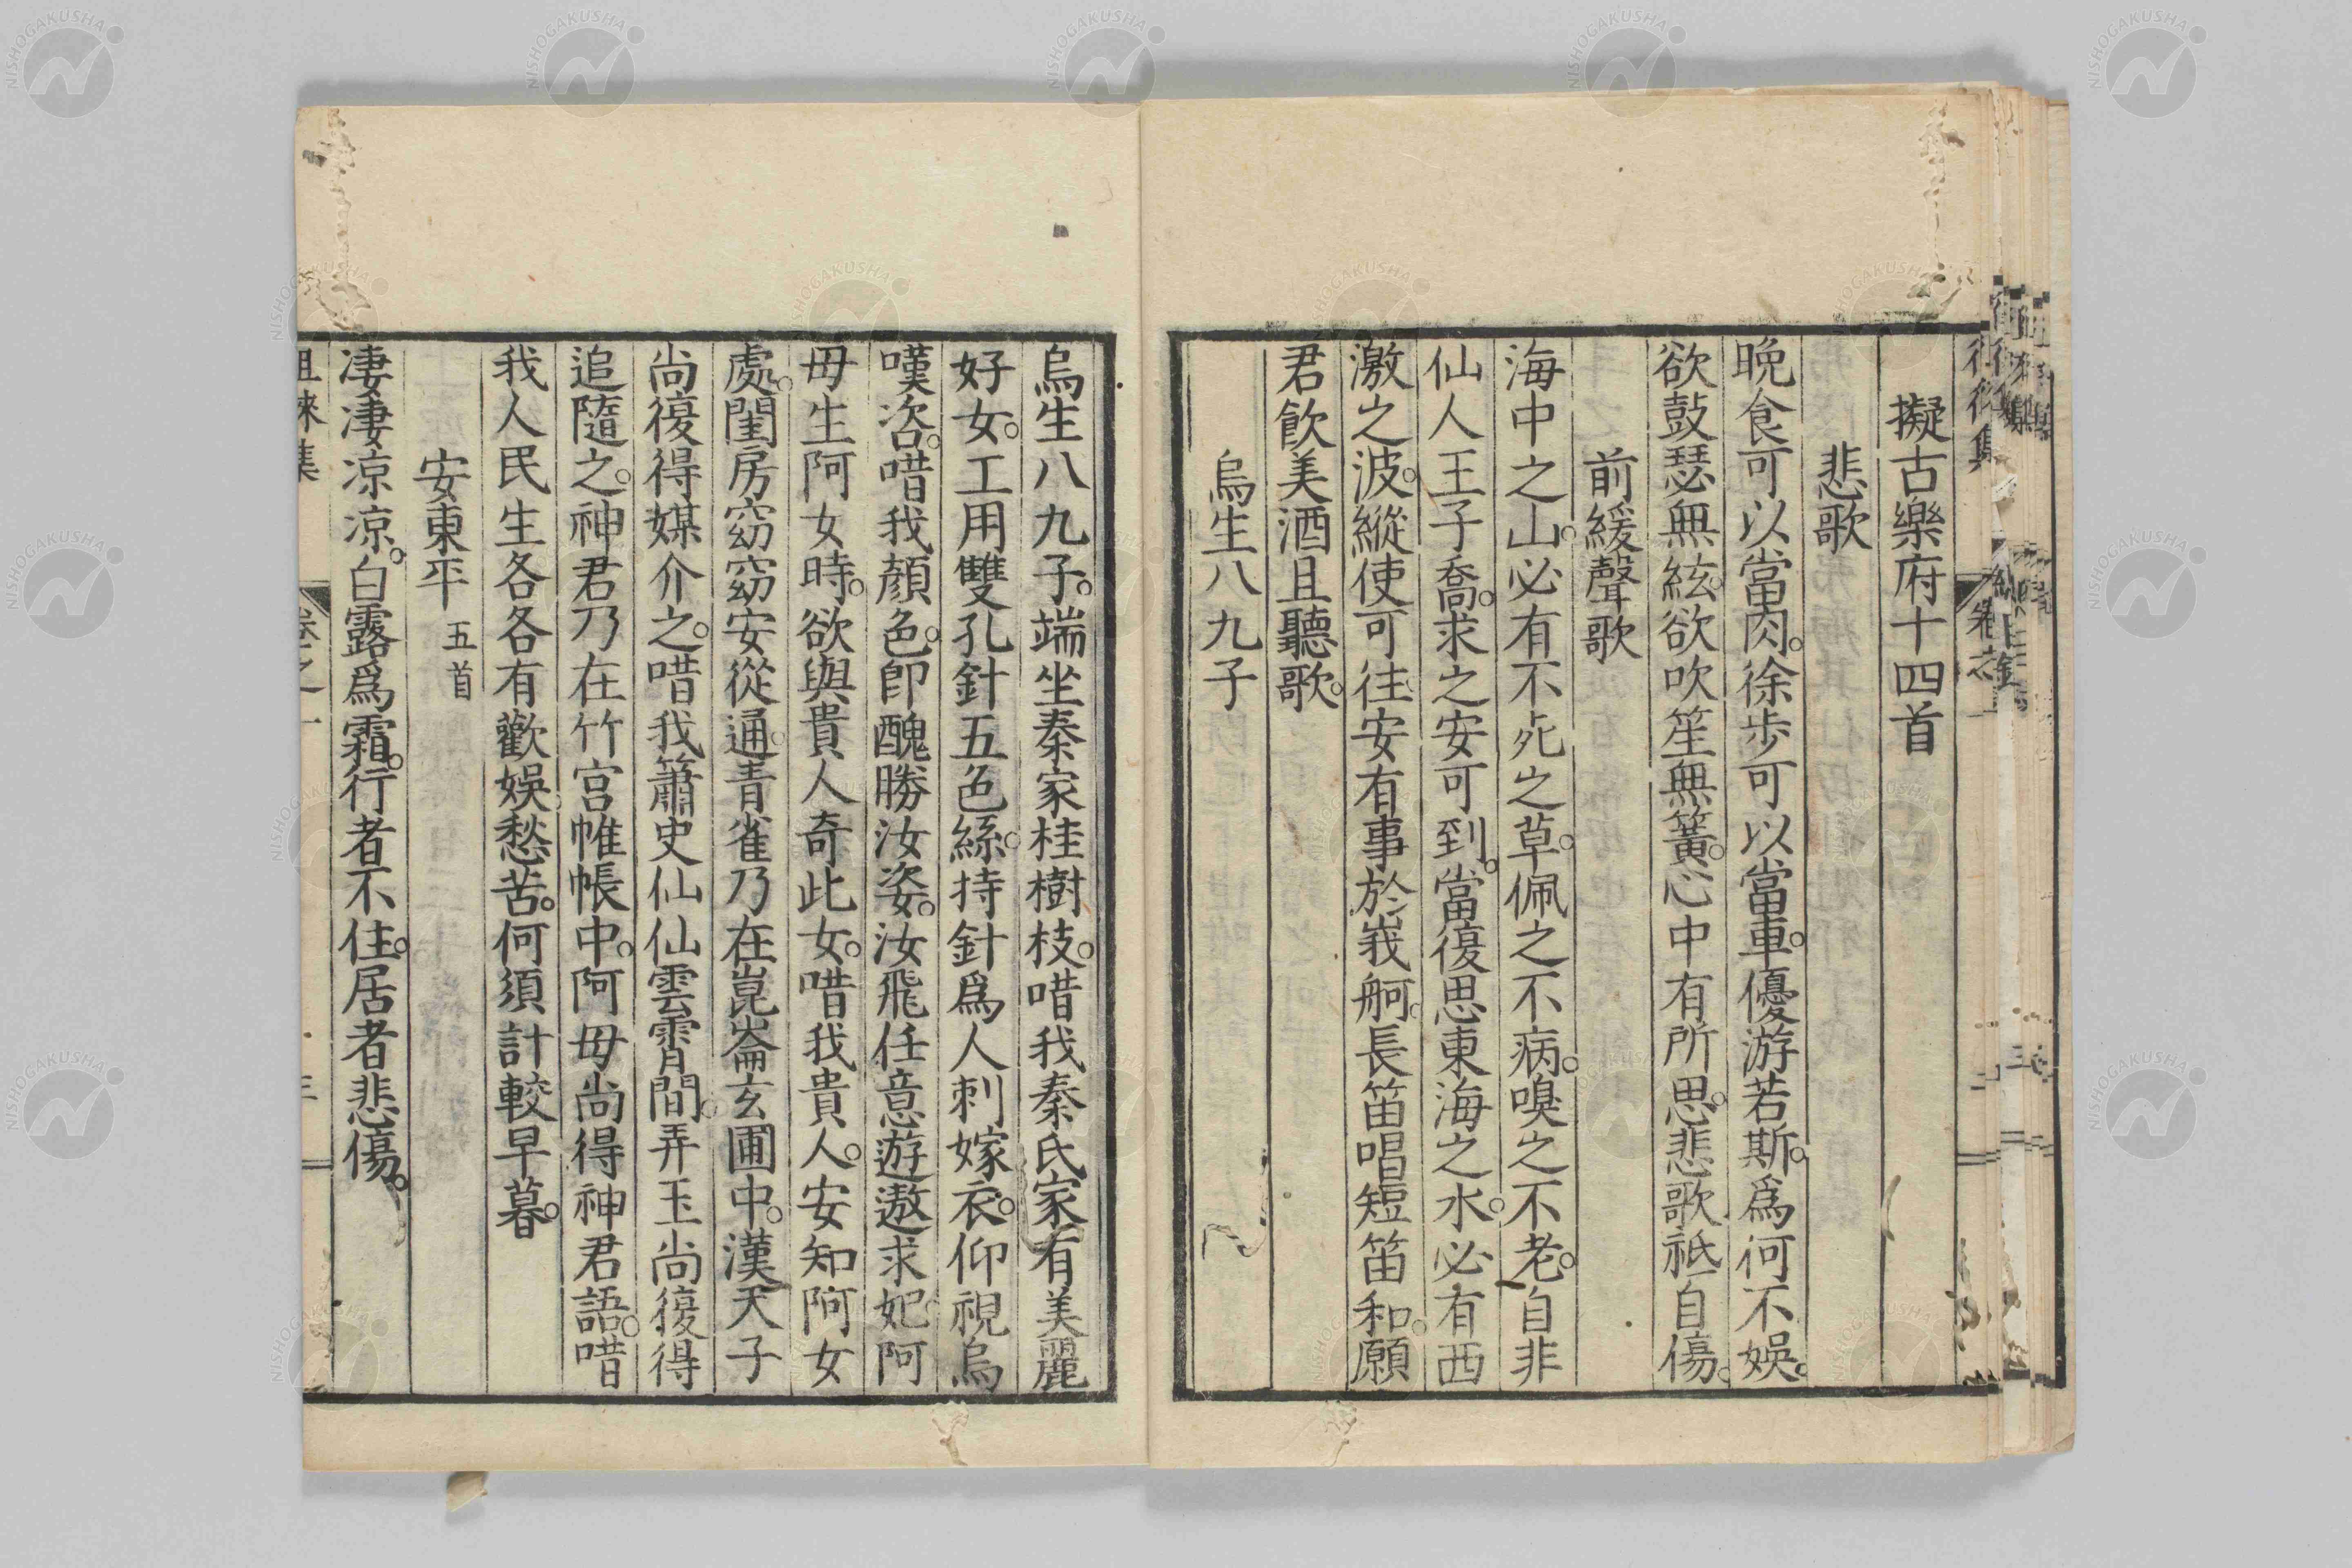 擬古樂府十四首
悲歌
晚食可以當肉。徐步可以當車。優游若斯。爲何不娯。
欲鼓瑟無絃。欲吹笙無簧。心中有所思。悲歌祇自傷。
前緩聲歌
海中之山。必有不死之草。佩之不病。嗅之不老。自非
仙人王子喬。求之安可到。當復思東海之水。必有西
激之波。縱使可徃。安有事於峩舸。長笛唱短笛和。願
君飮美酒且聽歌。
烏生八九子
烏生八九子。端坐秦家桂樹枝。唶我秦氏家有美麗
好女。工用雙孔針五色絲。持針爲人刺嫁衣。仰視烏
嘆咨。唶我顏色。卽醜勝汝姿。汝飛任意遊遨求妃。阿
母生阿女時。欲與貴人奇此女。唶我貴人。安知阿女
處。閨房窈窈安從通。青雀乃在崑崙玄圃中。漢天子
尚復得媒介之。唶我簫史仙仙雲霄間。弄玉尚復得
追隨之。神君乃在竹宮帷帳中。阿母尚得神君語。唶
我人民生各各有歡娯。愁苦。何須計較早暮。
安東平 五首
凄凄凉凉。白露爲霜。行者不住。居者悲傷。
徂徠集 卷之一 三
NISHOGAKUSHA